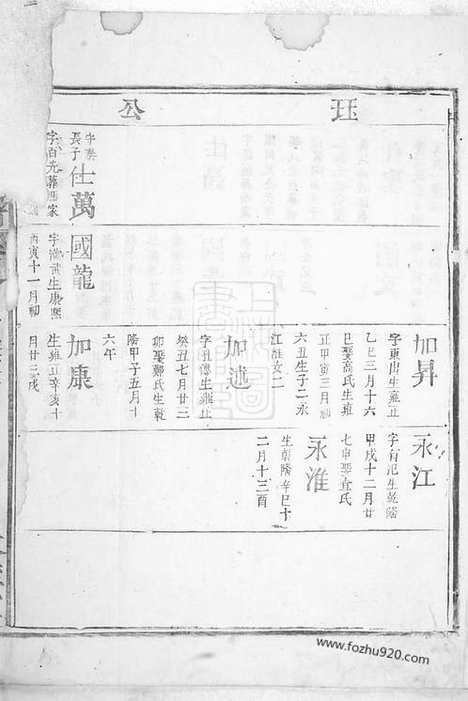 珏公
仕萬
字葵
長子
字百光葬馬家
國龍
生康熙
丙寅十一月初
加昇
字東山生雍正
乙巳三月十六
巳娶喬氏生雍
正甲寅三月初
六丑生子二永
江永淮女二
加述
字孔傳生雍正
癸丑七月廿三
卯娶鄭氏生乾
隆甲子五月十
六午
加康
生雍正辛亥十
月廿三戌
永江
字有氾生乾隆
甲戌十二月廿
七申娶查氏
永淮
生乾隆辛巳十
二月十三酉
www.fozhu920.com